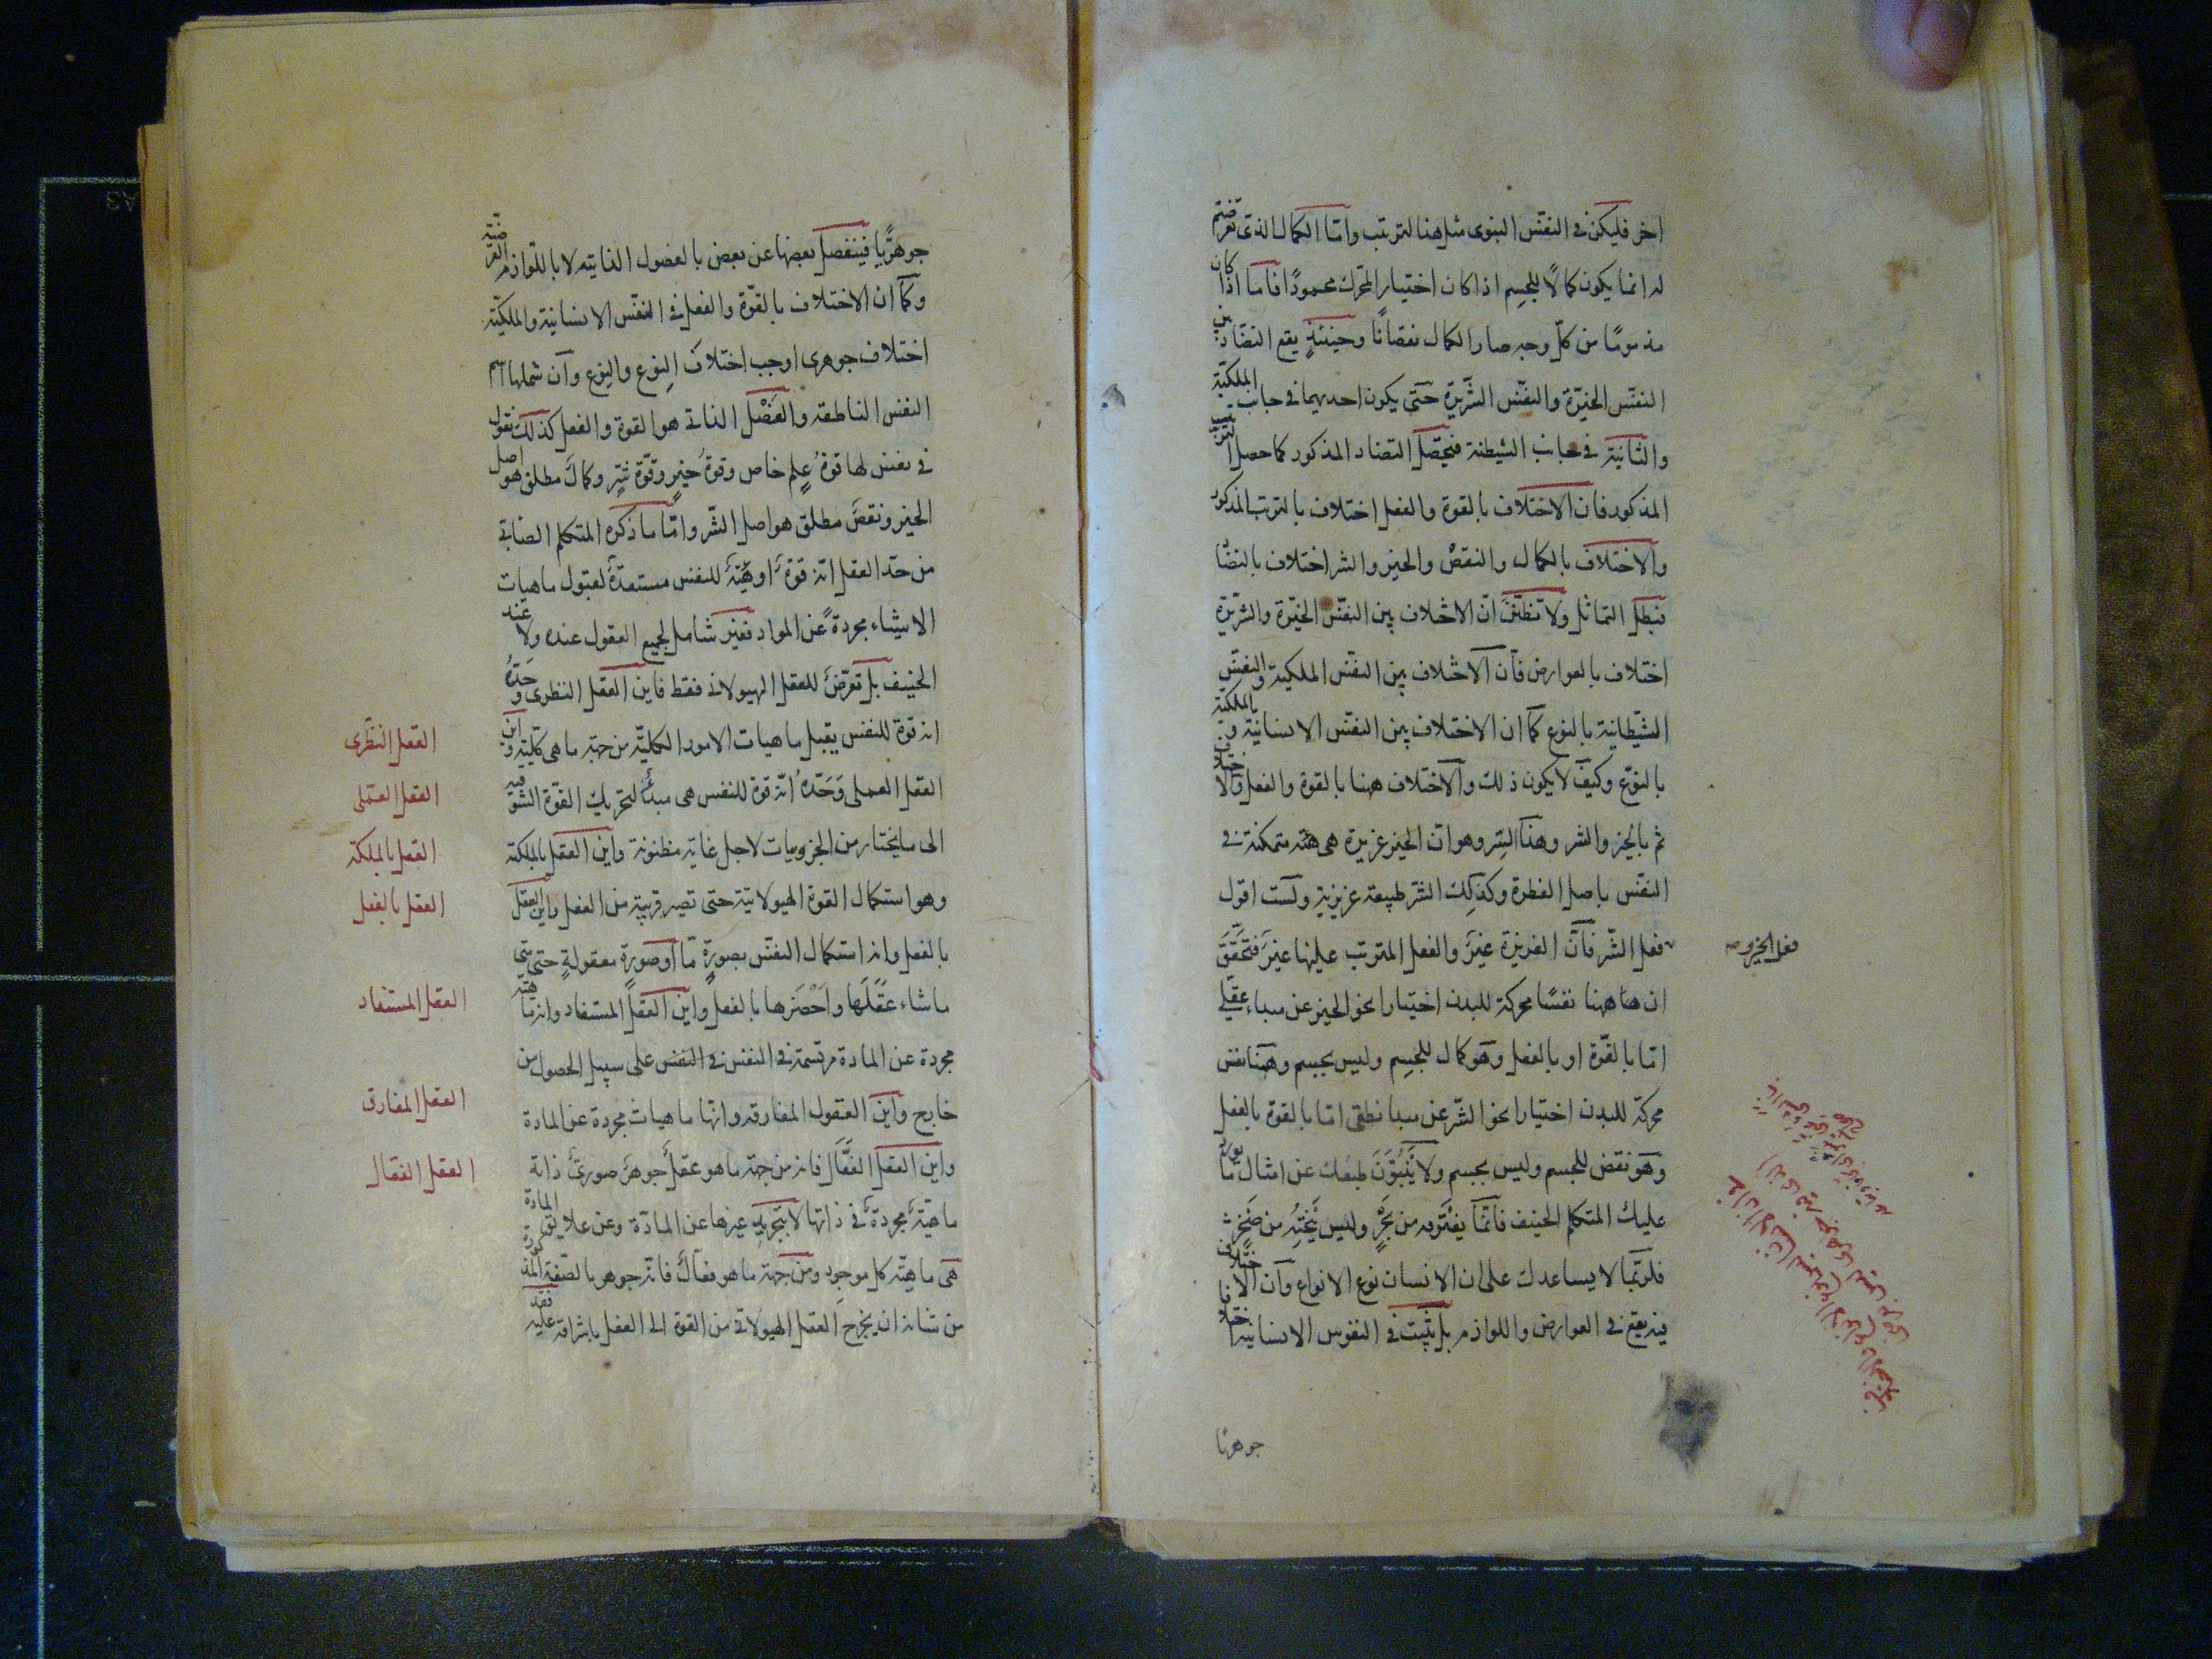 اخر فليكن في النفس النبوى مثل هذا الترتب واما الكمال الذى تعرضتم
له انما يكون كمالًا للجسم اذا كان اختيار المحرك محمودًا فاما اذا كان
مذمومًا من كل وجه صار الكمال نقصانًا وحينئذٍ يقع التضاد بين
النفس الخيّرة والنفس الشريرة حتى يكون احديهما في جانب الملكية
والثانية في جانب الشيطنة فيحصل التضاد المذكور كما حصل الترتيب
المذكور فان الاختلاف بالقوة والفعل اختلاف بالترتب المذكور
والاختلاف بالكمال والنقص والخير والشر اختلاف بالتضاد
فبطل التماثل ولا تظنّنّ انّ الاختلاف بين النفس الخيّرة والشريرة
اختلاف بالعوارض فان الاختلاف بين النفس الملكية والنفس
الشيطانية بالنوع كما ان الاختلاف بين النفس الانسانية والملكية
بالنوع وكيف لا يكون ذلك والاختلاف ههنا بالقوة والفعل والاختلاف
ثم بالخير والشر وهذا السر وهو ان الخير غريزة هى هيئة متمكنة في
النفس باصل الفطرة وكذلك الشر طبيعة غريزية ولست اقول
فعل الخير و
فعل الشّر فانّ الغريزة غيرٌ والفعل المترتب عليها غيرٌ فتحقق
ان هاهنا نفسًا محركة للبدن اختيارا نحو الخير عن مبداء عقلى
اما بالقوّة او بالفعل وهو كمال للجسم وليس بجسم وههنا نفس
محركة للبدن اختيارا نحو الشر عن مبدا نطقى اما بالقوة بالفعل
وهو نقص للجسم وليس بجسم ولا ينبوَنّ طبعك عن امثال ما يورده
عليك المتكلم الحنيف فانّما يغترفه من بحرٍ وليس ينحته من صخرٍ
فلربّما لا يساعدك على ان الانسان نوع الانواع وان الاختلاف
فيه يقع في العوارض واللوازم بل يثبت في النفوس الانسانية اختلافا
جوهريا
جوهريًّا فينفصل بعضها عن بعض بالفصول الذاتية لا باللوازم العرضية
وكما ان الاختلاف بالقوّة والفعل في النفس الانسانية والملكيّة
اختلاف جوهرى اوجب اختلاف النوع والنوع وان شملها اسم
النفس الناطقة والفَصْل الذاتي هو القوة والفعل كذلك نقول
في نفس لها قوةُ علمٍ خاص وقوةُ خيرٍ وقوّة شرٍ وكمال مطلق هو اصل
الخير ونقص مطلق هو اصل الشّر وامّا ما ذكره المتكلم الصابي
من حدّ العقل انه قوةٌ او هيئةٌ للنفس مستعدّةٌ لقبول ماهيات
الاشياء مجردةً عن المواد فغير شامل لجميع العقول عنده ولا عند
الحنيف بل تعرّضٌ للعقل الهيولاني فقط فاين العقل النظرى وحدّهُ
انه قوة للنفس يقبل ماهيات الامور الكليّة من جهة ما هى كلية واين
العقل العملى وَحَدّهُ انّه قوة للنفس هى مبدأ لتحريك القوّة الشوقية
الى ما يختار من الجزويات لاجل غاية مظنونة واين العقل بالملكة
وهو استكمال القوة الهيولانية حتى تصير قريبة من الفعل واين العقل
بالفعل وانه استكمال النفس بصورةٍ مّا او صورةٍ معقولةٍ حتى متى
ما شاء عَقَلَها واَحْضَرها بالفعل واين العقل المستفاد وانه ماهية
مجردة عن المادة مرتسمة في النفس في النفس على سبيل الحصول من
خارج واين العقول المفارقه وانها ماهيات مجردة عن المادة
واين العقل الفعَّال فانه من جهة ما هو عقلٌ جوهرٌ صورىٌ ذاته
ماهيّةٌ مجردةٌ في ذاتها لا بتجريد غيرها عن المادّة وعن علايق المادة
هى ماهيّه كل موجود ومن جهة ما هو فعالٌ فانه جوهر بالصفة المذكورة
من شانه ان يخرج العقل الهيولاني من القوة الى الفعل باشراقه عليه فقد
العقل النظرى
العقل العملى
العقل بالملكة
العقل بالفعل
العقل المستفاد
العقل المفارق
العقل الفعال